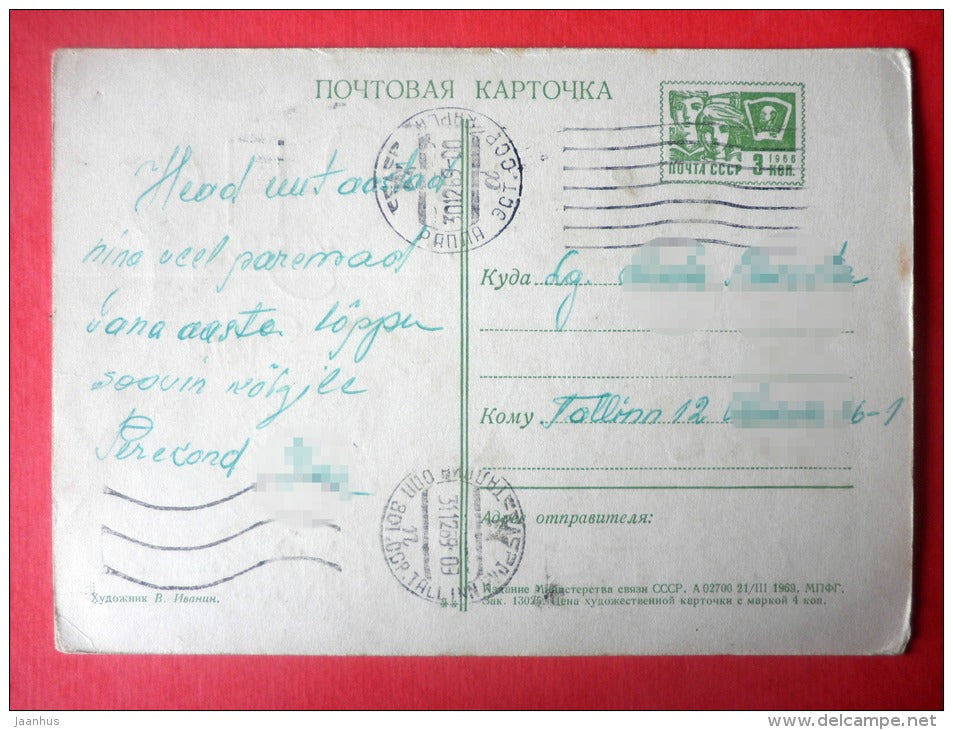 ПОЧТОВАЯ КАРТОЧКА
1966
ПОЧТА СССР 3 коп.
РАПЛА
Head uut aastat
ning veel paremad
vana aasta lõppu
soovin kõigile
Perekond
Куда Lg.
Кому Tallinn 12 6-1
Адрес отправителя:
311269-09
TALLINN
Художник В. Иванин.
Издание Министерства связи СССР. А 02700 21/III 1969. МПФГ.
Зак. 1302 Цена художественной карточки с маркой 4 коп.
Jaanhus
delcampe.net